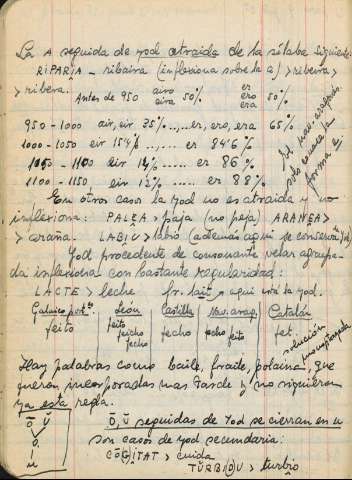 La A seguida de yod atraida de la sílaba siguiente
RIPARIA - ribaira (inflexiona sobre la a) > ribeira >
> ribera.
Antes de 950 airo eira 50% er ero era 50%
950-1000 air, eir 35% ..,.. er, ero, era 65%
1000-1050 eir 15'4% ..,.. er 84'6%
1050-1100 eir 14% ..... er 86%
1100-1150 eir 12% ..... er 88%
El nav-aragonés.
solo conoce la
forma e
En otros casos la yod no es atraida y no
inflexiona: PALEA > paja (no peja) ARANEA >
> araña. LABIU > labio (además aquí se conserva yod)
Yod procedente de consonante velar agrupa-
da inflexiona con bastante regularidad:
LACTE > leche fr. lait, y aquí está la yod.
Galaico port. León Castilla Nav. arag. Catalán
feito feito feicho fecho fecho fecho feito fet.
solución
Hay palabras como baile, fraile, polaina, que
fueron incorporadas mas tarde y no siguieron
ya esta regla.
Ō, Ŭ
O
U
Ō, Ŭ seguidas de yod se cierran en u
son casos de yod secundaria:
CŌ(G)ITAT > cuida
TŬRBI(D)U > turbio